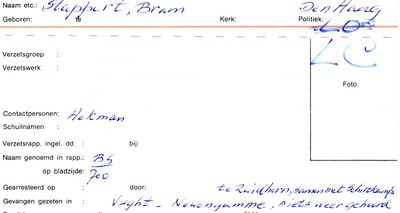 Naam etc.: Slappert, Bram Den Haag
Geboren: te Kerk: Politiek:
LO
LC
Verzetsgroep :
Verzetswerk :
Foto
Contactpersonen: Hekman
Schuilnamen :
Verzetsrapp. ingel. dd. : bij:
Naam genoemd in rapp.: BS
op bladzijde: 700
Gearresteerd op : door: te Zuidhorn, samen met Schiltkamp
Gevangen gezeten in : Vught - Neuengamme, niets weer gehoord